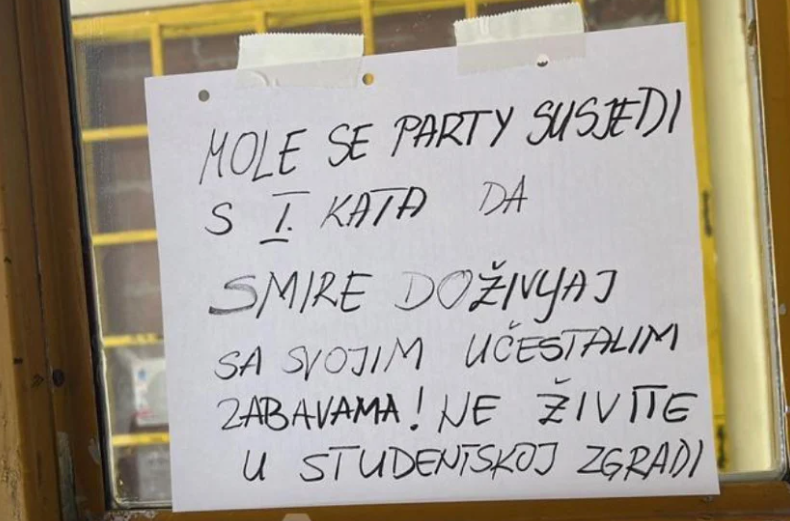 MOLE SE PARTY SUSJEDI
S I. KATA DA
SMIRE DOŽIVLJAJ
SA SVOJIM UČESTALIM
ZABAVAMA! NE ŽIVITE
U STUDENTSKOJ ZGRADI